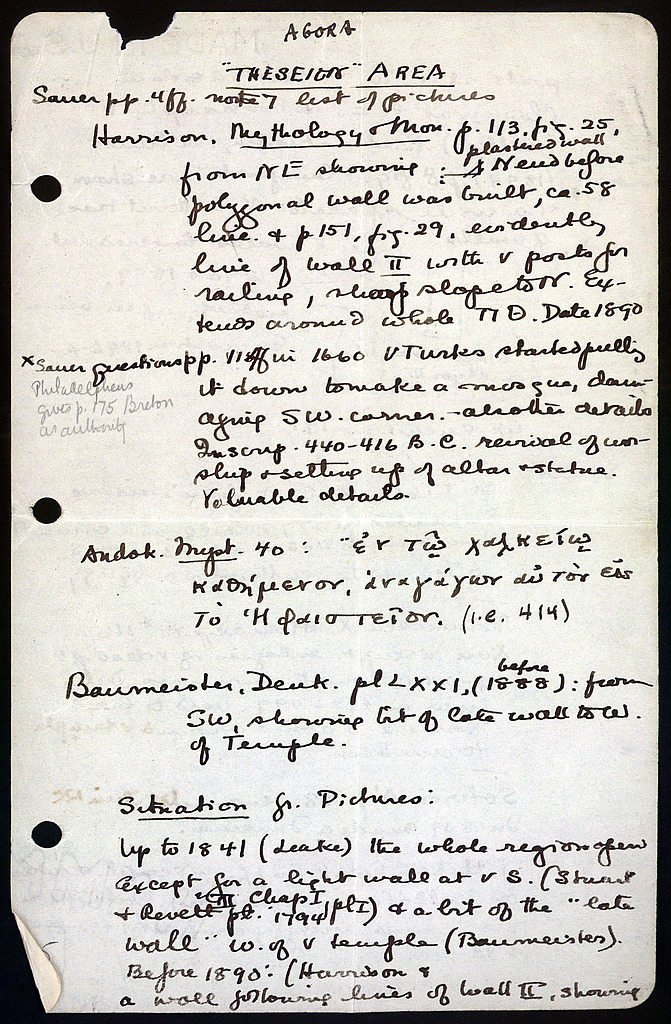 AGORA
"THESEION" AREA
Sauer pp. 4ff. note 7 list of pictures
Harrison, Mythology & Mon. p. 113, fig. 25,
plastered wall
from NE showing : N end before
polygonal wall was built, ca. 58
line. & p 151, fig. 29, evidently
line of wall II with v posts for
railing, sharp slope to N. Ex-
tends around whole ΠΘ. Date 1890
x Sauer questions pp. 11ff in 1660 v Turks started pulling
Philadelpheus
gives p. 175 Breton
as authority
it down to make a mosque, dam-
aging SW. corner. - another details
Inscrip. 440-416 B.C. revival of wor-
ship & setting up of altar & statue.
Valuable details.
Andok. Myst. 40 : "ἐν τῷ χαλκείῳ
καθήμενον, ἀναγάγων αὐτὸν εἰς
τὸ Ἡφαιστεῖον. (i.e. 414)
Baumeister, Denk. pl LXXI, (before 1888) : from
SW, showing bit of late wall to W.
of Temple.
Situation fr. Pictures:
Up to 1841 (Leake) the whole region open
except for a light wall at v S. (Stuart
& Revett III Chap I 1794 pl I) & a bit of the "late
wall" w. of v temple (Baumeister).
Before 1890: (Harrison &
a wall following lines of wall II, showing